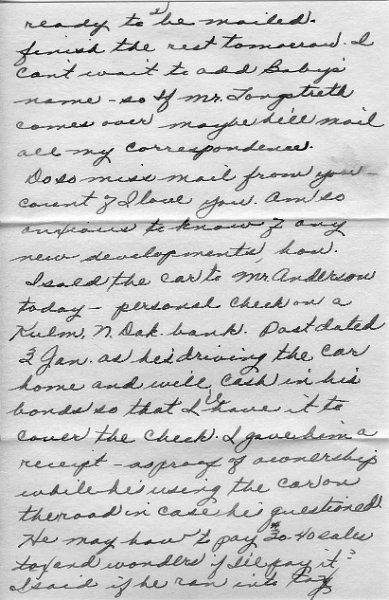 ready to be mailed.
finish the rest tomorrow. I
can't wait to add Baby's
name - so if Mr. Longstreth
comes over maybe he'll mail
all my correspondence.
Do so miss mail from you -
count of I love you. Am so
anxious to know of any
new developments, hon.
I sold the car to Mr Anderson
today - personal check on a
Kulm, N. Dak. bank. Post dated
2 Jan. as he's driving the car
home and will cash in his
bonds so that I have it to
cover the check. I gave him a
receipt - as proof of ownership
while he using the car on
the road in case he questioned.
He may have to pay 40 sales
tax and wonders if I'll pay it?
I said if he ran into